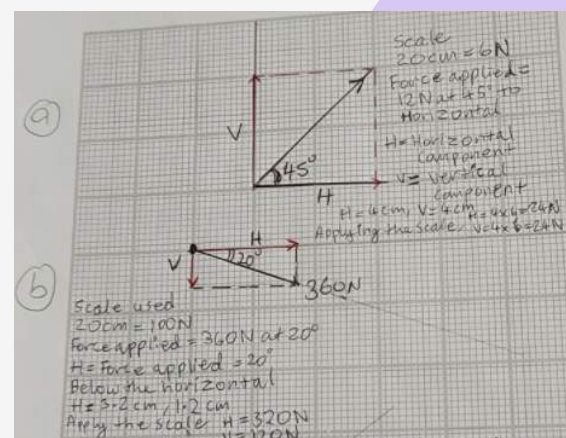 Scale
20cm=6N
Force applied=
12N at 45° to
Horizontal
H=Horizontal
component
V= vertical
component
H=4cm, V=4cm
H=4x6=24N
Applying the scale, V=4x6=24N
a
V
45°
H
b
H
V
20°
360N
Scale used
20cm=100N
Force applied=360N at 20°
H=Force applied=20°
Below the horizontal
H=3.2cm, 1.2cm
Apply the scale H=320N
V=120N